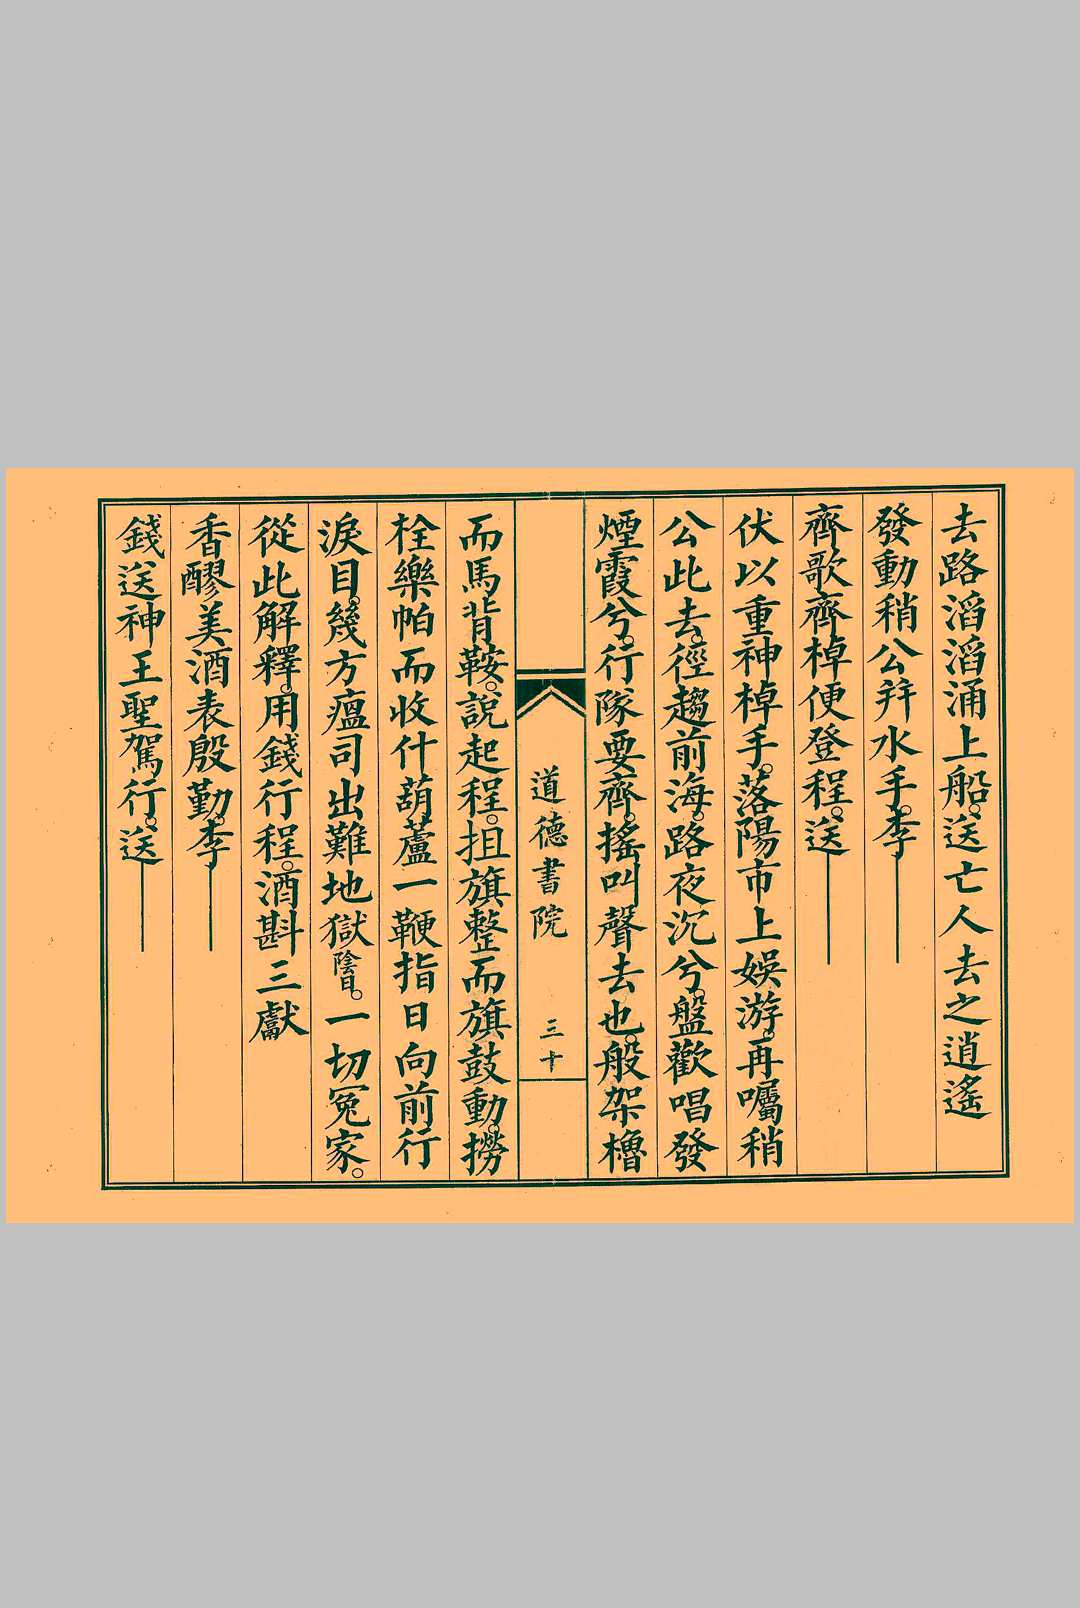 去路滔滔涌上船。送亡人去之逍遙
發動稍公并水手。李
齊歌齊棹便登程。送
伏以重神棹手。落陽市上娛游。再囑稍
公此去。徑趨前海。路夜沉兮。盤歡唱發
煙霞兮。行隊要齊。搖叫聲去也。般架櫓
道德書院 三十
而馬背鞍。說起程。扭旗整而旗鼓動。撈
栓樂帕而收什葫蘆一鞭指日向前行
淚目。幾方瘟司出難地獄陰目。一切冤家。
從此解釋。用錢行程。酒斟三獻
香醪美酒表殷勤。李
錢送神王聖駕行。送